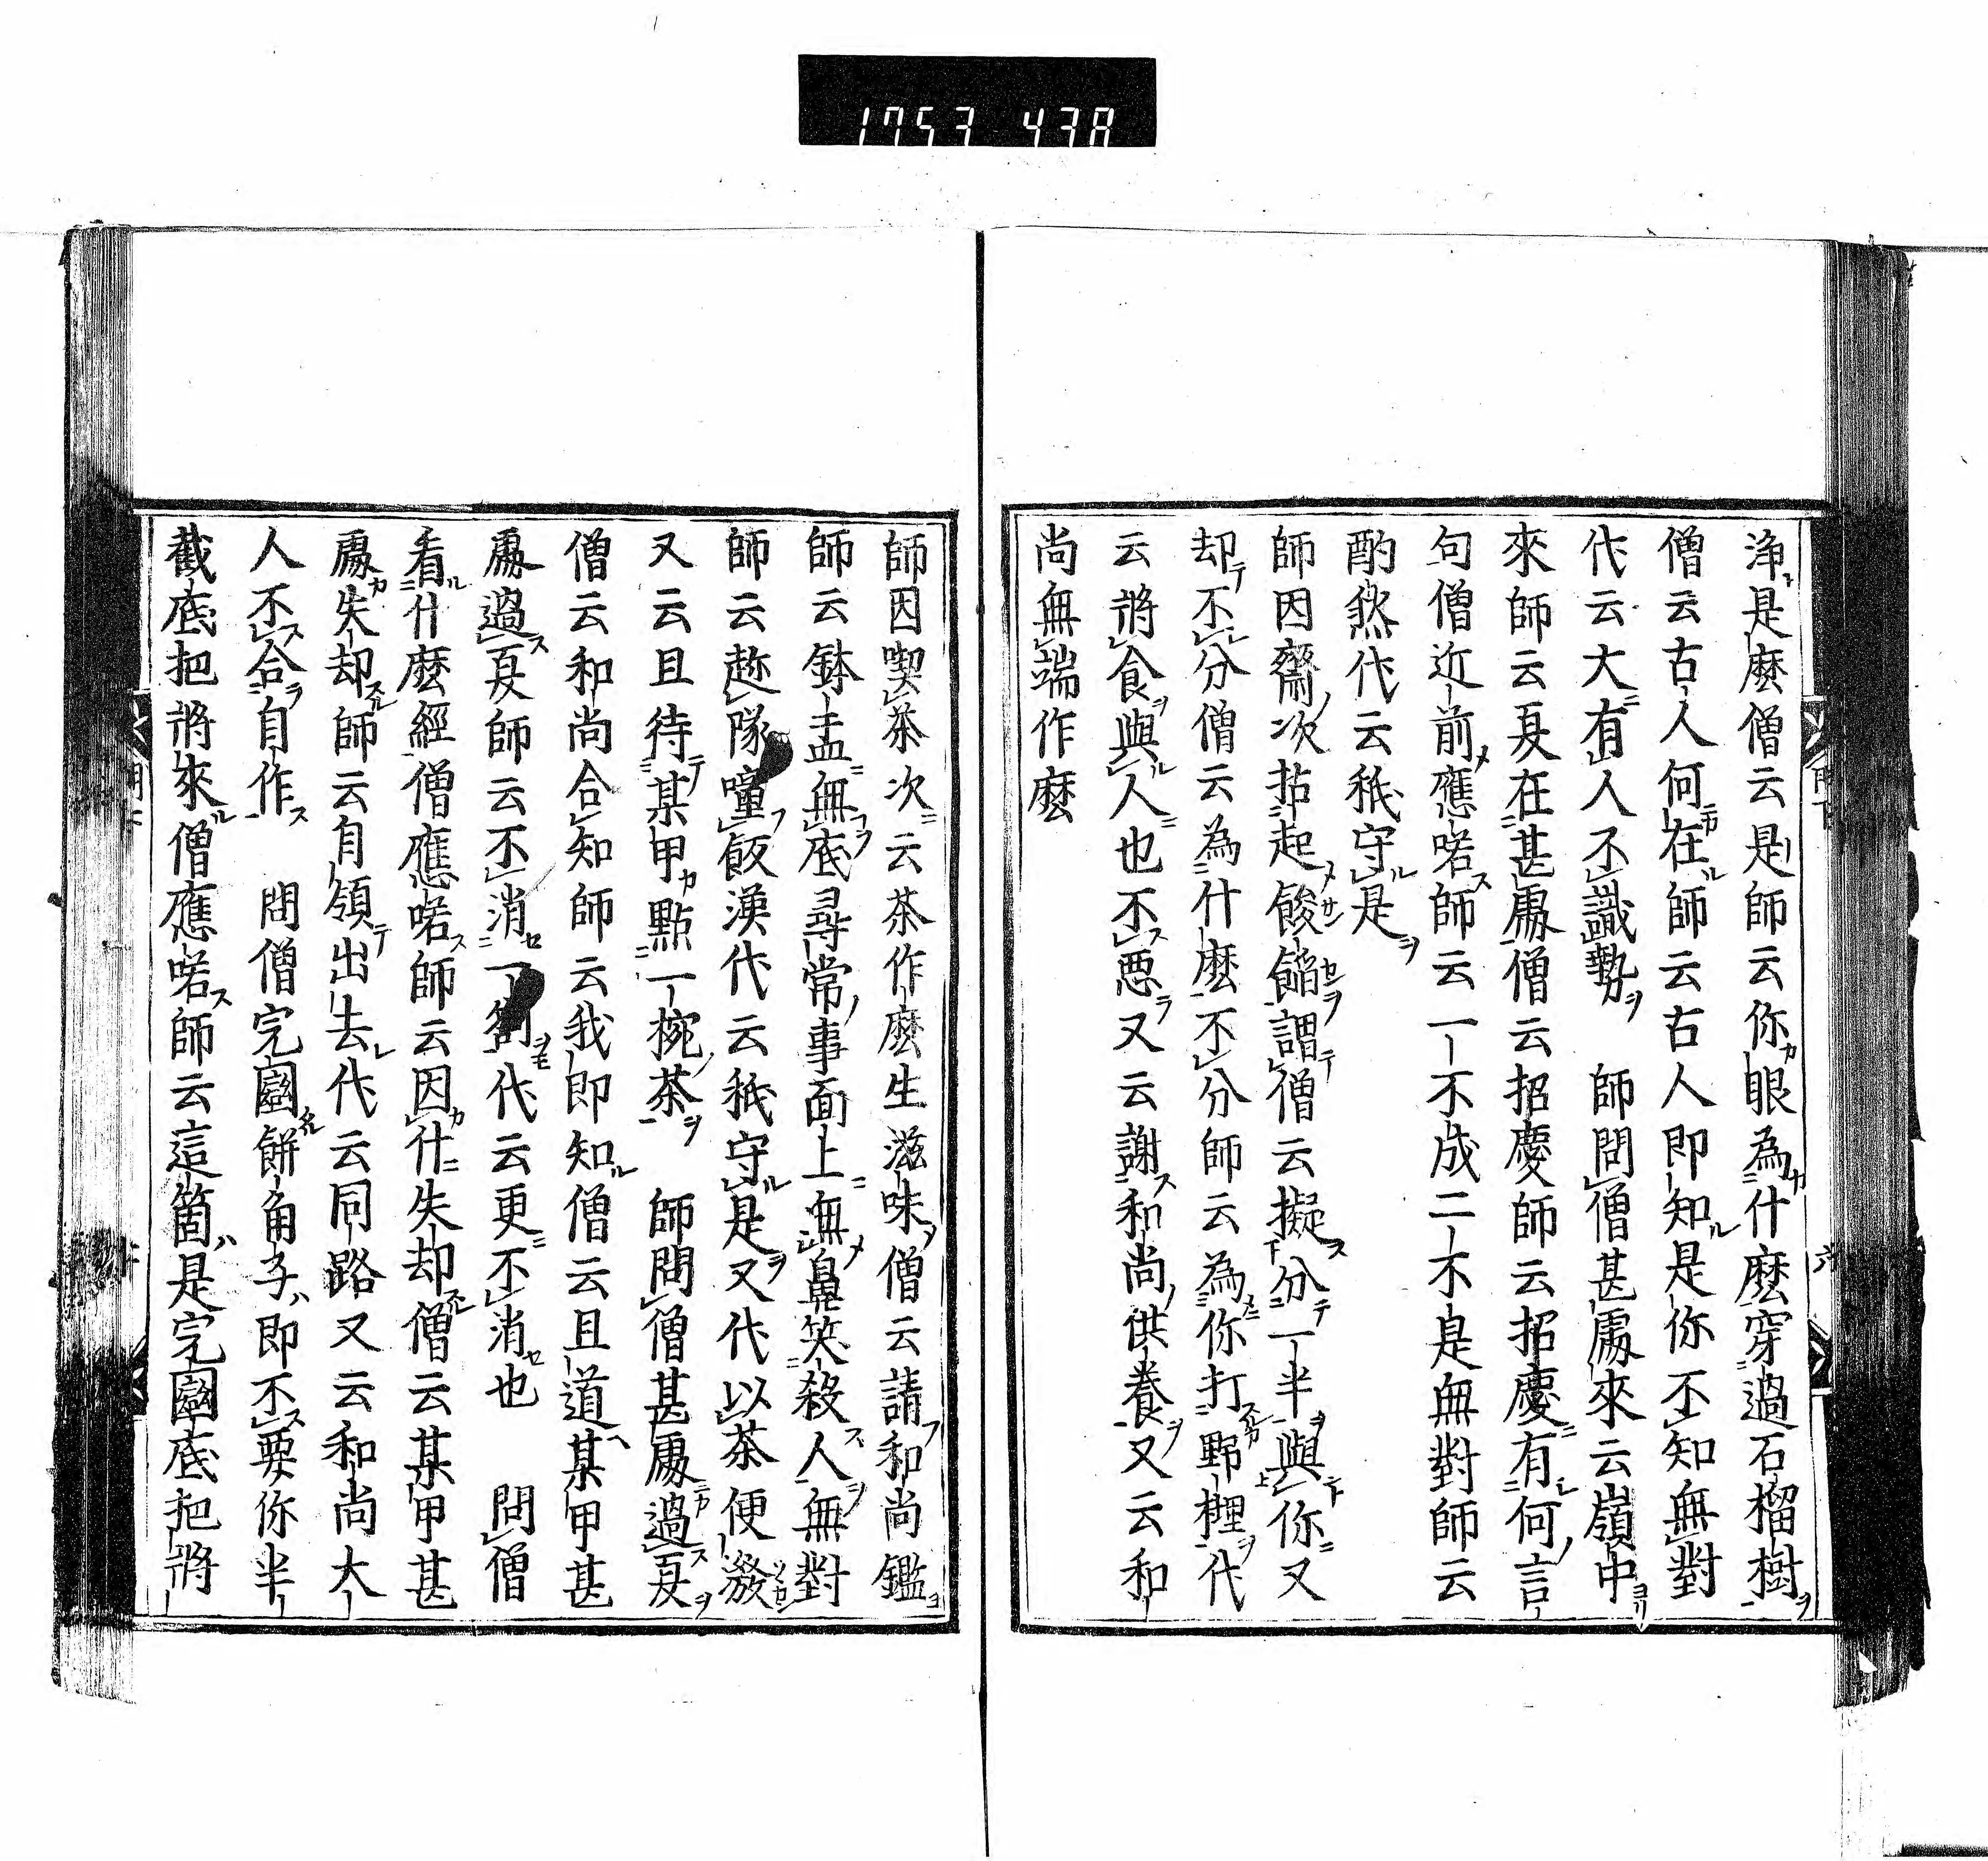 1753 438
淨是麼僧云是師云你眼為什麼穿過石榴樹
僧云古人何在師云古人即知是你不知無對
代云大有人不識勢　師問僧甚處來云嶺中
來師云夏在甚處僧云招慶師云招慶有何言
句僧近前應喏師云一不成二不是無對師云
酌然代云秖守是
師因齋次拈起餕餡謂僧云擬分一半與你又
却不分僧云為什麼不分師云為你打野榸代
云將食與人也不惡又云謝和尚供養又云和
尚無端作麼
師因喫茶次云茶作麼生滋味僧云請和尚鑑
師云鉢盂無底尋常事面上無鼻笑殺人無對
師云趂隊噇飯漢代云秖守是又代以茶便潑
又云且待某甲點一椀茶　師問僧甚處過夏
僧云和尚合知師云我即知僧云且道某甲甚
處過夏師云不消一劄代云更不消也　問僧
看什麼經僧應喏師云因什失却僧云某甲甚
處失却師云自領出去代云同路又云和尚大
人不合自作　問僧完圝餅角子即不要你半
截底把將來僧應喏師云這箇是完圝底把將